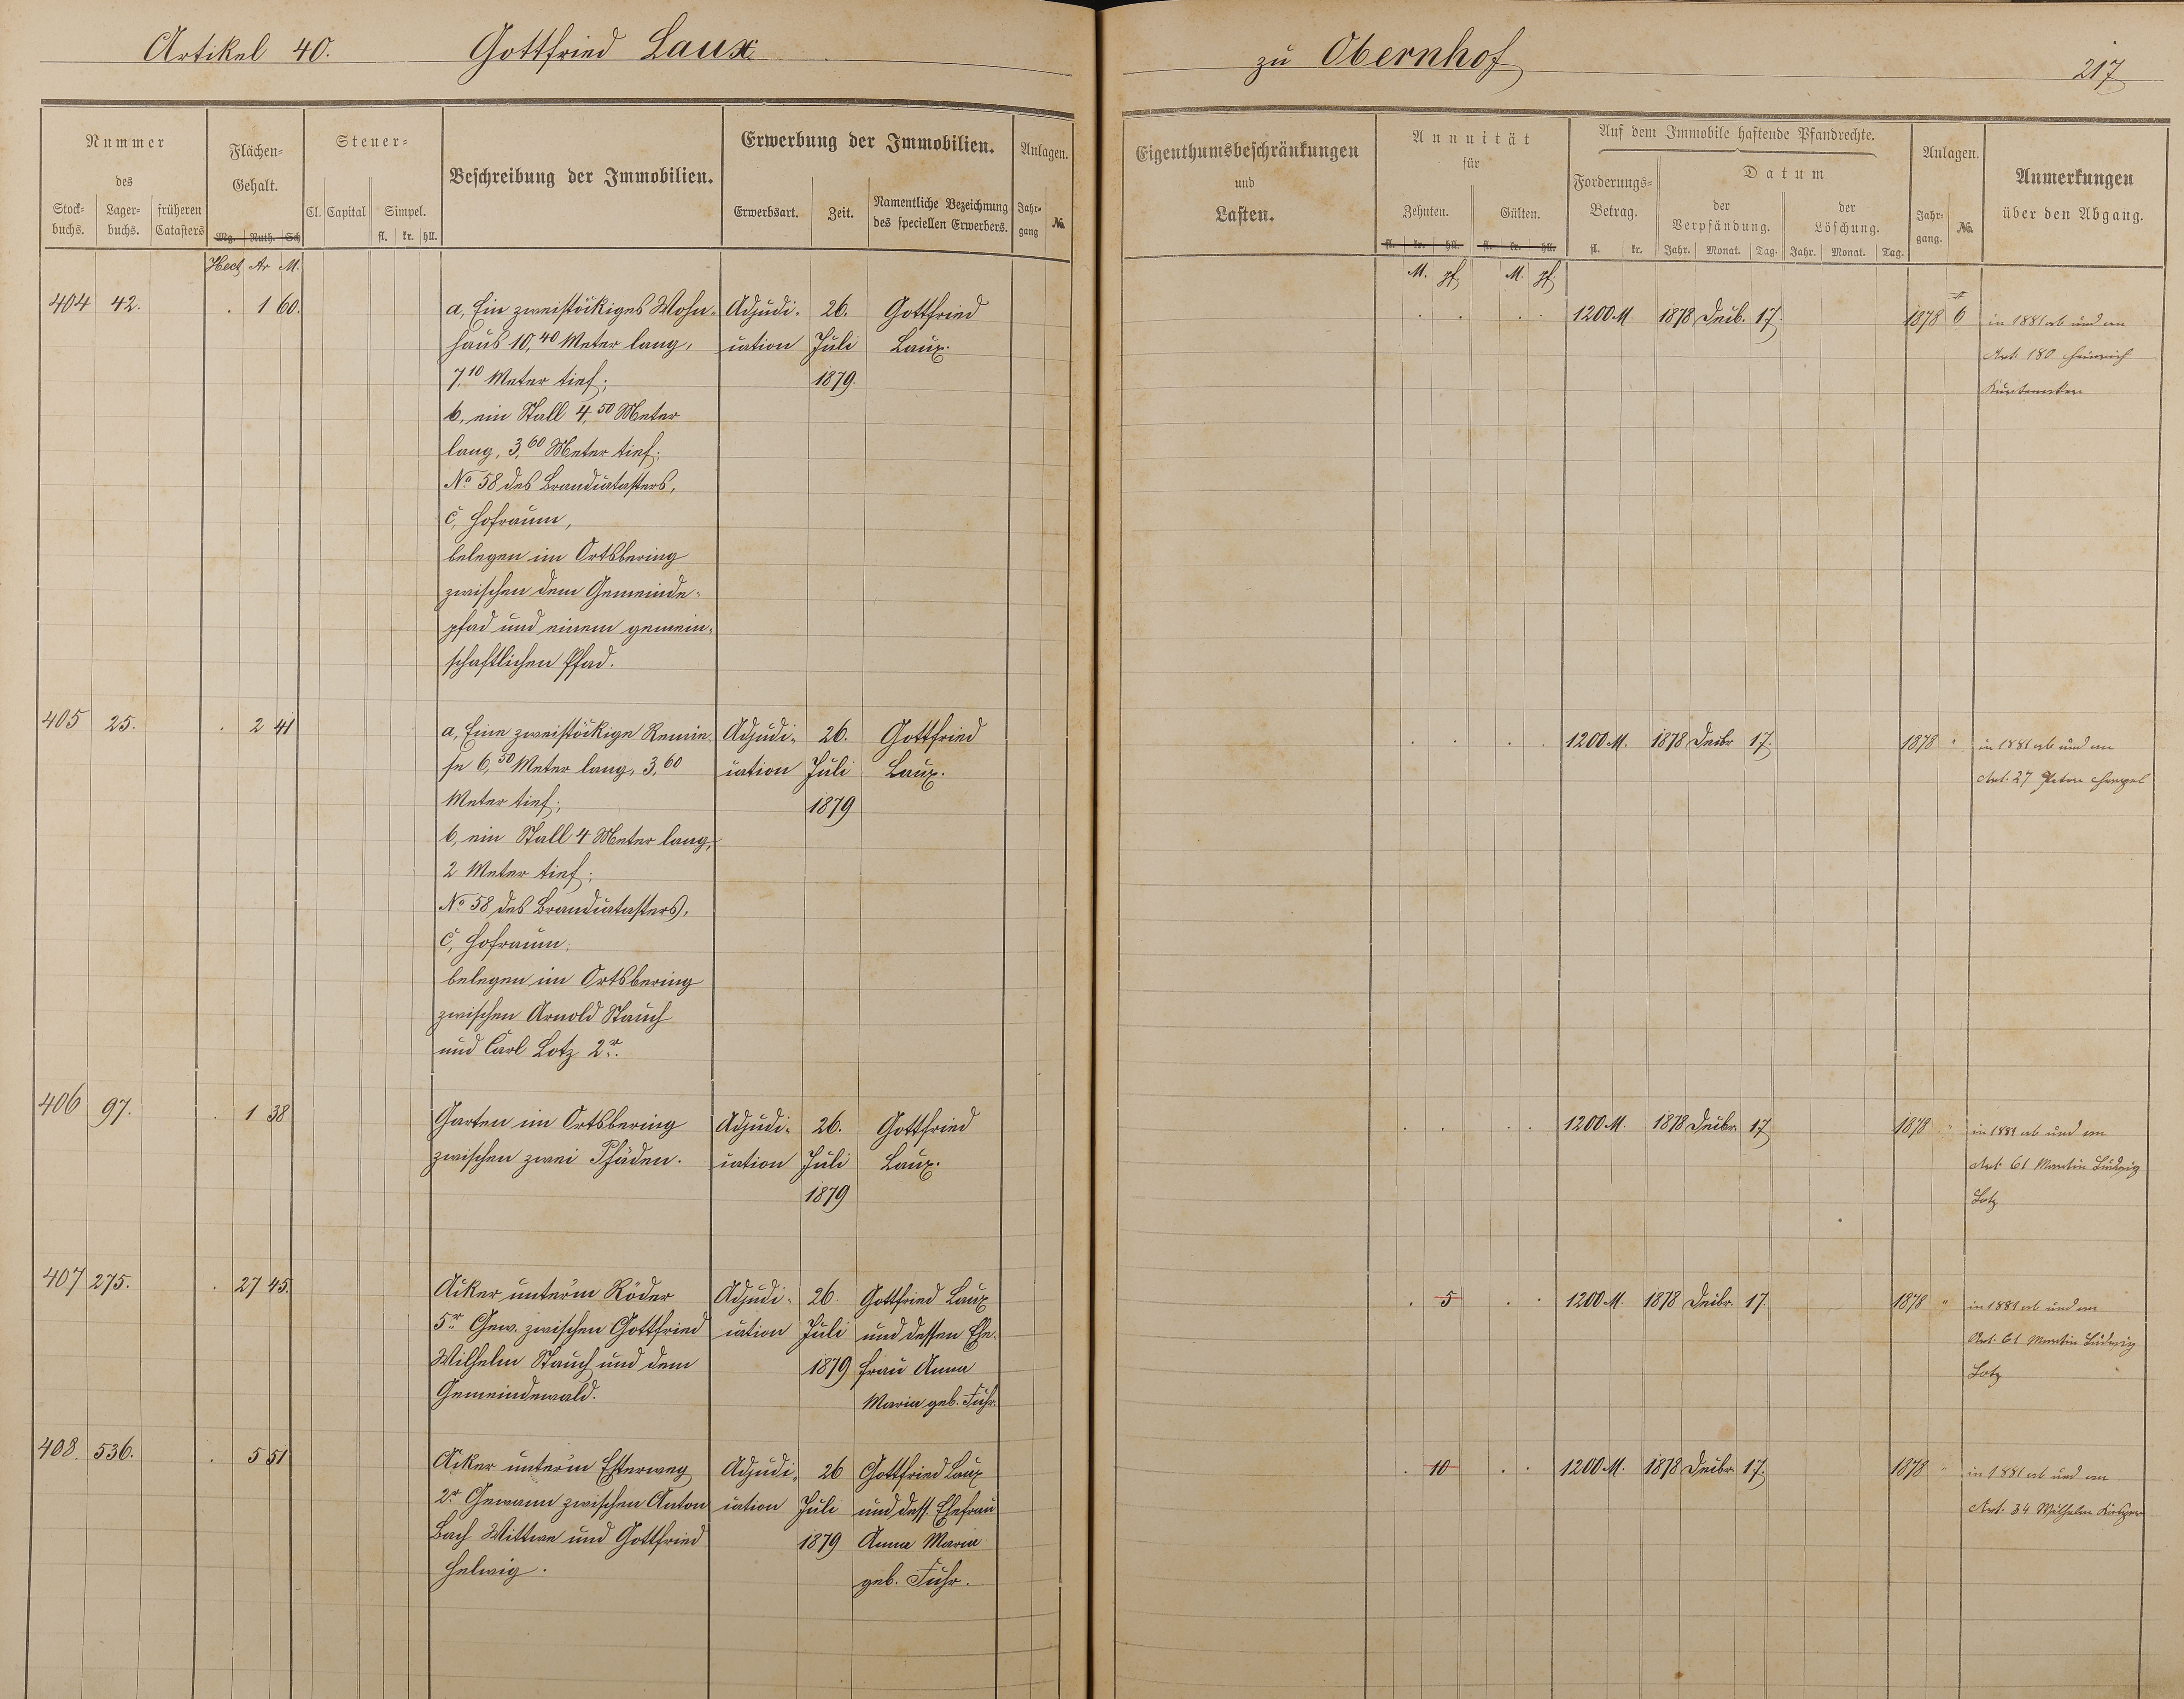 Artikel 40. Gottfried Laux
zu Obernhof 217
Nummer des
Stock-buchs. Lager-buchs. früheren Catasters
Flächen-Gehalt.
Mg. Ruth. Sch
Steuer-
Cl. Capital Simpel.
fl. kr. hll.
Beschreibung der Immobilien.
Erwerbung der Immobilien.
Erwerbsart. Zeit. Namentliche Bezeichnung des speciellen Erwerbers.
Anlagen.
Jahr-gang №
Eigenthumsbeschränkungen
und
Lasten.
Annuität
für
Zehnten. Gülten.
fl. kr. hll. fl. kr. hll.
Auf dem Immobile haftende Pfandrechte.
Forderungs-Betrag.
fl. kr.
Datum
der Verpfändung. der Löschung.
Jahr. Monat. Tag. Jahr. Monat. Tag.
Anlagen.
Jahr-gang. №
Anmerkungen
über den Abgang.
Hect Ar M.
M. pf. M. pf.
404 42. . 1 60.
a, Ein zweistöckiges Wohn-
haus 10,40 Meter lang,
7,10 Meter tief;
b, ein Stall 4,50 Meter
lang, 3,60 Meter tief;
No 58 des Brandcatasters,
c, Hofraum,
belegen im Ortsbering
zwischen dem Gemeinde-
pfad und einem gemein-
schaftlichen Pfad.
Adjudi- 26. Gottfried
cation Juli Laux.
1879.
1200 M 1878 Decb. 17. 1878 6
in 1881 ab und an
Art. 180 Heinrich
405 25. . 2 41
a, Eine zweistöckige Remie-
se 6,50 Meter lang, 3,60
Meter tief;
b, ein Stall 4 Meter lang,
2 Meter tief;
No 58 des Brandcatasters,
c, Hofraum;
belegen im Ortsbering
zwischen Arnold Stauch
und Carl Lotz 2r.
Adjudi- 26. Gottfried
cation Juli Laux.
1879
1200 M. 1878 Decbr 17. 1878 "
in 1881 ab und an
Art. 27 Peter
406 97. . 1 38
Garten im Ortsbering
zwischen zwei Pfäden.
Adjudi- 26. Gottfried
cation Juli Laux.
1879
1200 M. 1878 Decbr. 17 1878 "
in 1881 ab und an
Art. 61 Martin Ludwig
Lotz
407 275. . 27 45.
Acker unterm Röder
5r Gew. zwischen Gottfried
Wilhelm Stauch und dem
Gemeindewald.
Adjudi- 26. Gottfried Laux
cation Juli und dessen Ehe-
1879 frau Anna
Maria geb. Fuhr.
. 5 . . 1200 M. 1878 Decbr. 17. 1878 "
in 1881 ab und an
Art. 61 Martin Ludwig
Lotz
408. 536. . 5 51
Acker unterm Esterweg
2r Gewann zwischen Anton
Bach Wittwe und Gottfried
Helwig.
Adjudi- 26 Gottfried Laux
cation Juli und dess. Ehefrau
1879 Anna Maria
geb. Fuhr.
. 10 . . 1200 M. 1878 Decbr 17. 1878 "
in 1881 ab und an
Art. 34 Wilhelm